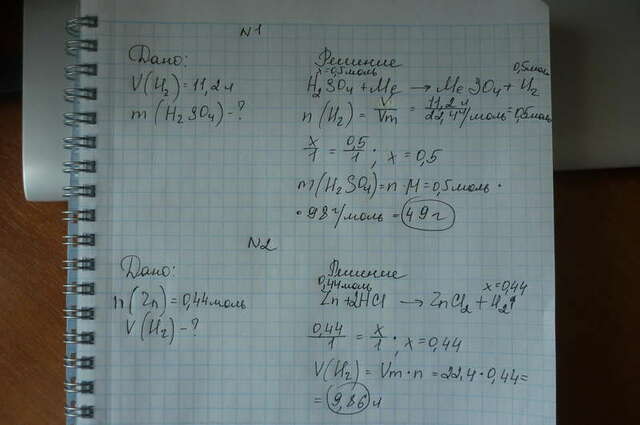 N1
Дано:
V(H₂) = 11,2 л
m(H₂SO₄) - ?
Решение
x = 0,5 моль 0,5 моль
H₂SO₄ + Me → MeSO₄ + H₂
n(H₂) = V/Vm = 11,2 л/22,4 л/моль = 0,5 моль
x/1 = 0,5/1; x = 0,5
m(H₂SO₄) = n · M = 0,5 моль ·
· 98 г/моль = 49 г
N2
Дано:
n(Zn) = 0,44 моль
V(H₂) - ?
Решение
0,44 моль x = 0,44
Zn + 2HCl → ZnCl₂ + H₂↑
0,44/1 = x/1; x = 0,44
V(H₂) = Vm · n = 22,4 · 0,44 =
= 9,86 л